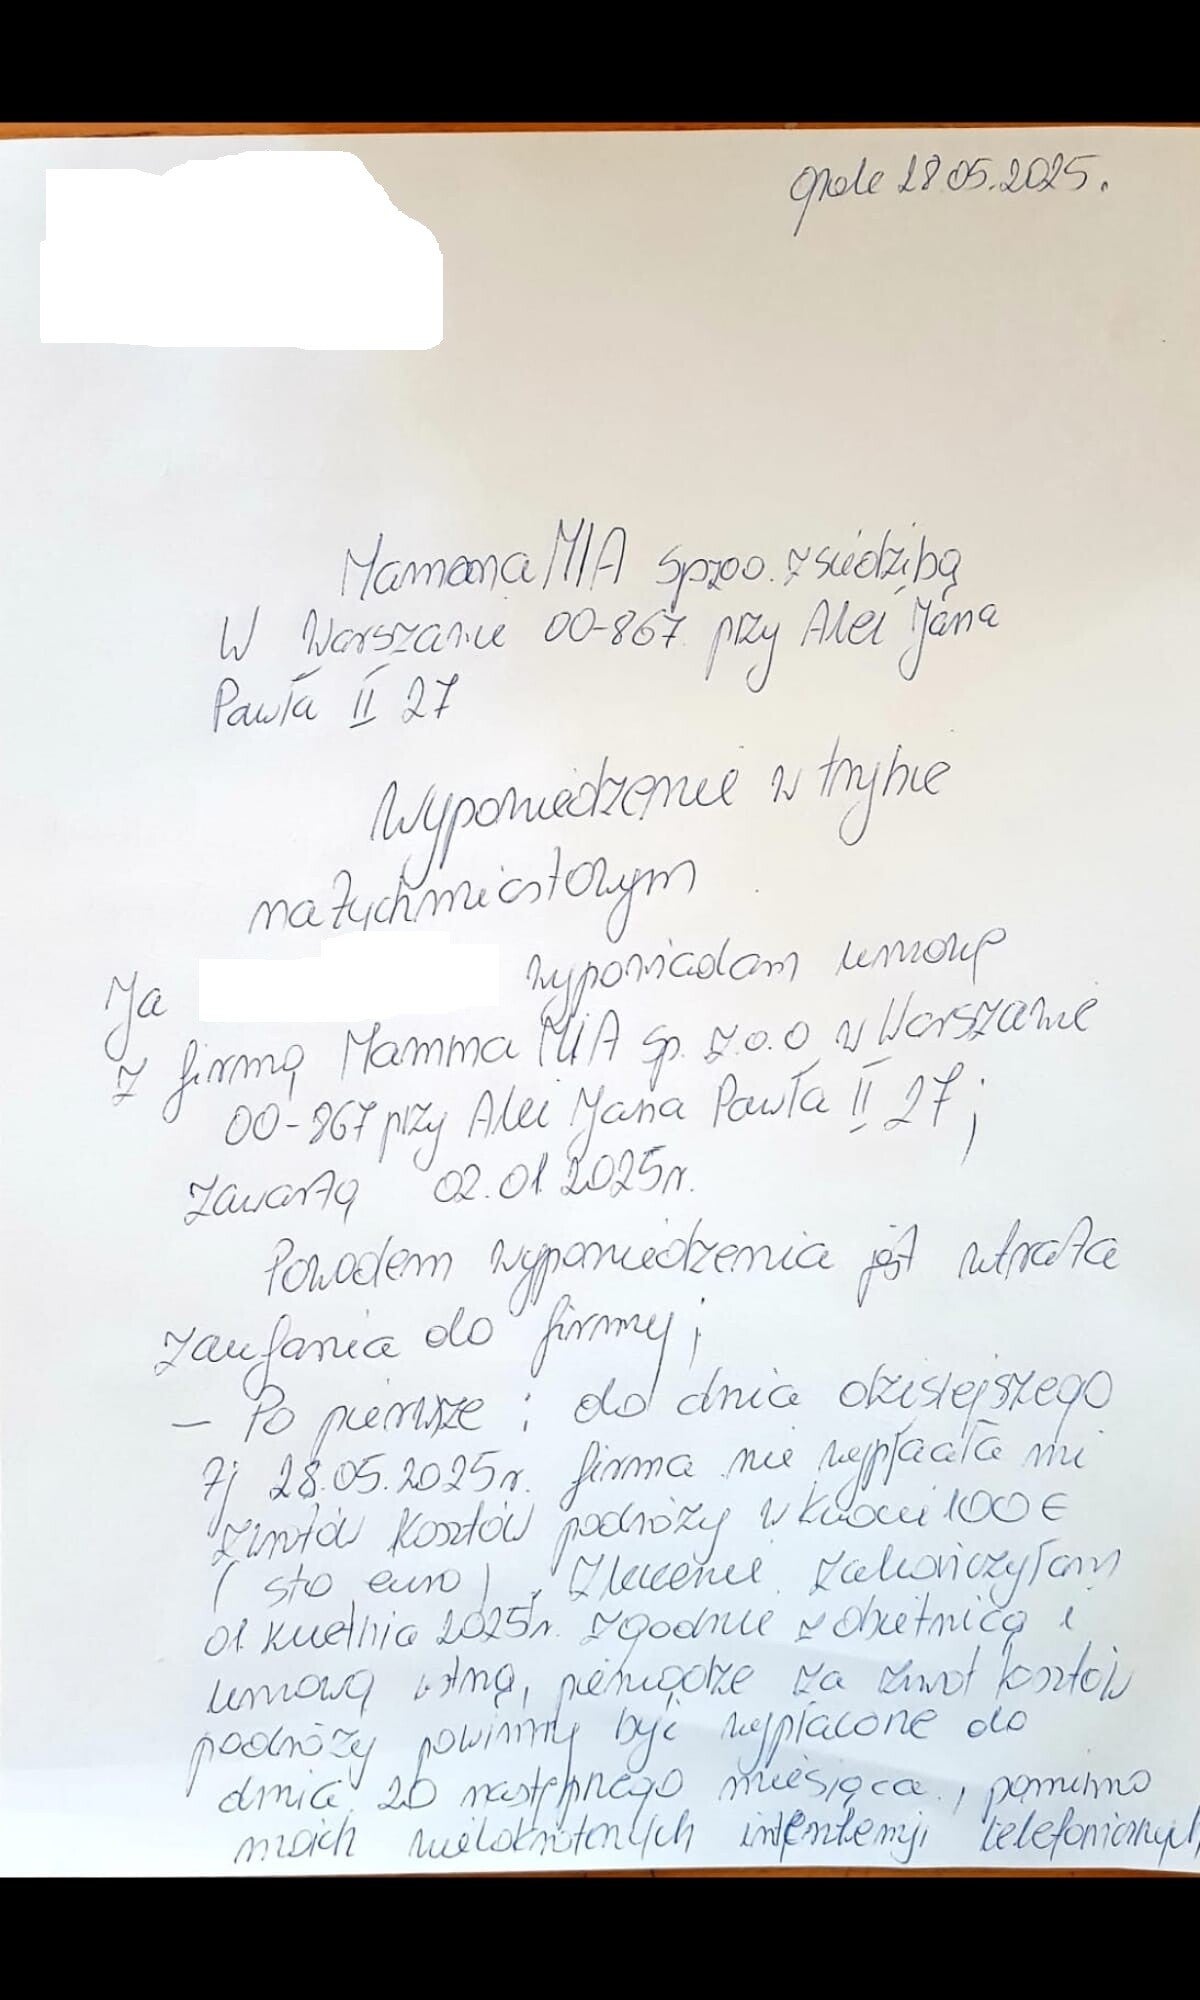 Opole 28.05.2025.
Mamma MIA sp zoo. z siedzibą
W Warszawie 00-867 przy Alei Jana
Pawła II 27
Wypowiedzenie w trybie
natychmiastowym
Ja wypowiadam umowę
z firmą Mamma MIA sp. z.o.o w Warszawie
00-867 przy Alei Jana Pawła II 27;
zawartą 02.01.2025r.
Powodem wypowiedzenia jest utrata
zaufania do firmy;
- Po pierwsze: do dnia dzisiejszego
tj 28.05.2025r. firma nie wypłaciła mi
zwrotów kosztów podróży w kwocie 100€
(sto euro). Zlecenie zakończyłam
01 kwietnia 2025r. zgodnie z obietnicą i
umową ustną, pieniądze za zwrot kosztów
podróży powinny być wypłacone do
dnia 20 następnego miesiąca, pomimo
moich wielokrotnych telefonicznych,